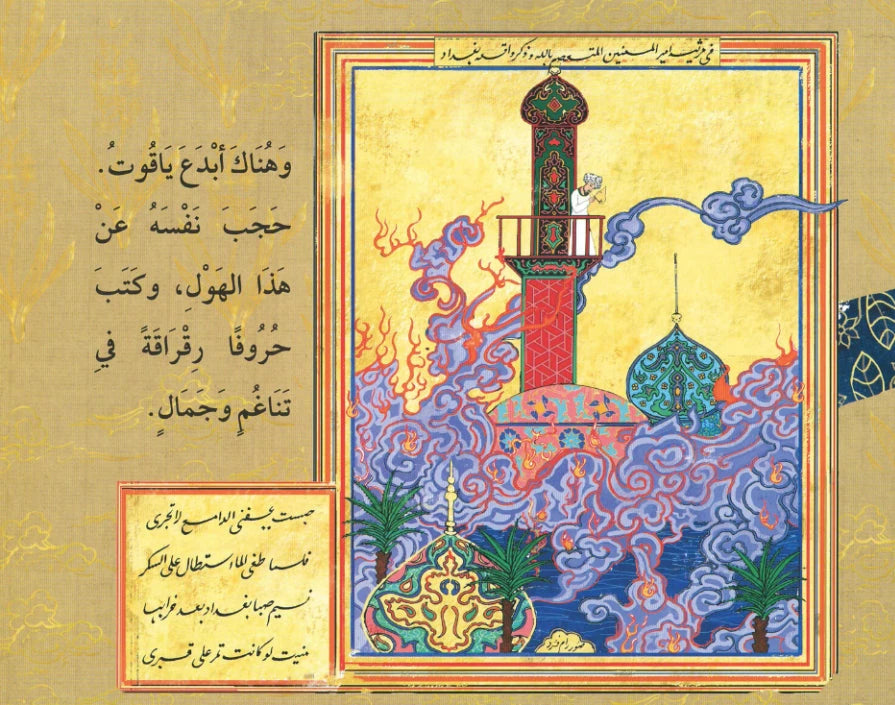 في مرثية امير المسنين المتعصم بالله وذكر واقعه بغداد
وَهُنَاكَ أبْدَعَ يَاقُوتُ.
حَجَبَ نَفْسَهُ عَنْ
هَذَا الهَوْلِ، وكَتَبَ
حُرُوفًا رِقْرَاقَةً فيِ
تَنَاغُمٍ وَجَمَالٍ.
حبست بجفني المدامع لا تجرى
فلما طغى الماء استطال على السكر
نسيم صبا بغداد بعد خرابها
منيت لو كانت تمر على قبرى